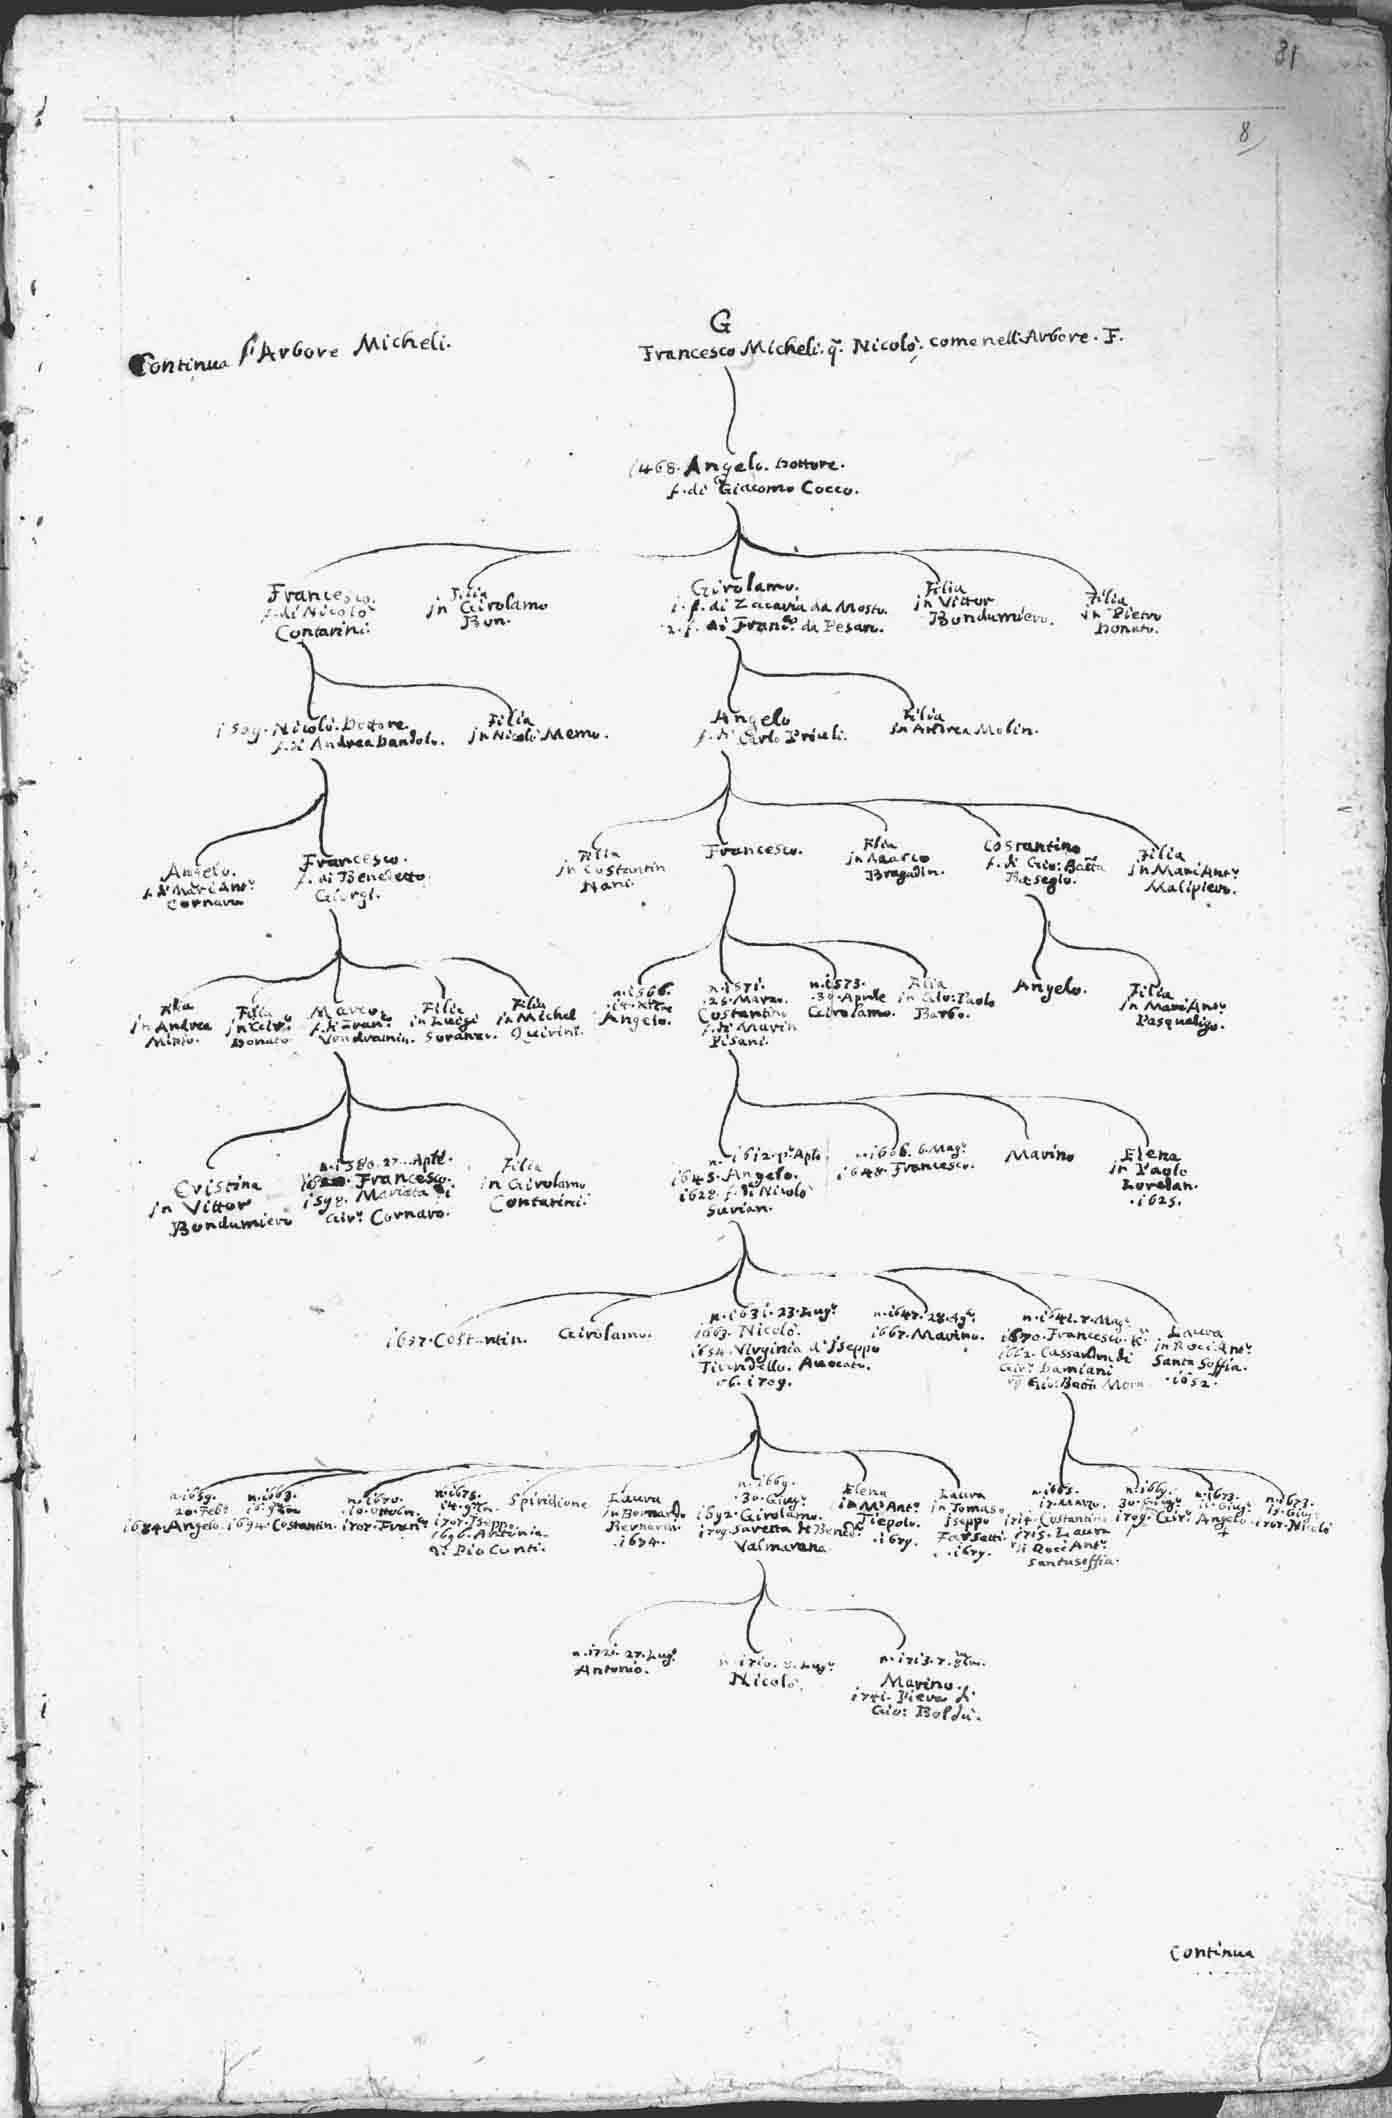 81
8
Continua l'Arbore Micheli.
G
Francesco Micheli. q. Nicolò. come nell'Arbore. F.
1468. Angelo. Dottore.
f. di Giacomo Cocco.
Francesco.
f. di Nicolò
Contarini.
Filia
jn Girolamo
Bon.
Girolamo.
1. f. di Zacaria da Mosto.
2. f. di Franc.º da Pesaro.
Filia
jn Vittor
Bondumiero.
Filia
jn Pietro
Donato.
1509. Nicolò. Dottore.
f. di Andrea Dandolo.
Filia
jn Nicolò Memo.
Angelo
f. di Carlo Priuli.
Filia
jn Andrea Molin.
Angelo.
f. di Mari Ant.º
Cornaro
Francesco.
f. di Benedetto
Giorgi.
Filia
jn Costantin
Nani.
Francesco.
Filia
jn Marco
Bragadin.
Costantino
f. di Gio: Batta
Baseglo.
Filia
jn Mari Ant.º
Malipiero.
Filia
jn Andrea
Minio.
Filia
jn Gir.º
Donato
Marco
f. di Fran.º
Vendramin.
Filia
jn Luigi
Soranzo.
Filia
jn Michel
Quirini.
n. 1566.
Angelo.
n. 1571.
25. Marzo.
Costantino
f. di Marin
Pisani.
n. 1573.
30. Aprile
Girolamo.
Filia
jn Gio: Paolo
Barbo.
Angelo.
Filia
jn Mari Ant.º
Pasqualigo.
Cristina
jn Vittor
Bondumiero
n. 1580. 27. Aple.
Francesco.
1598. Marieta di
Gir.º Cornaro.
Filia
jn Girolamo
Contarini
n. 1612. p.º Aple
1645. Angelo.
1628. f. di Nicolò
Surian.
n. 1606. 6. Mag.º
1648. Francesco.
Marino
Elena
jn Paolo
Loredan.
1625.
1657. Costantin.
Girolamo.
n. 1631. 23. Lug.º
1663. Nicolò.
1654. Virginia di Jseppo
Tirindello. Avocato.
ob. 1709.
n. 1647. 28. Ag.º
1667. Marino.
n. 1641. 7. Mag.º
1670. Francesco. K.r
1662. Cassandra di
Gir.º Damiani
q. Gio: Batta Moro
Laura
jn Roci Ant.º
Santa Soffia.
1652.
n. 1659.
20. Feb.º
1684. Angelo.
n. 1663.
1694. Costantin.
n. 1670.
10. Ottobr.
1707. Franc.º
n. 1675.
1707. Jseppo.
1696. Antonia
di Pio Conti.
Spiridione
Laura
jn Bernardo
Bernardi.
1694.
n. 1669.
30. Giug.º
1692. Girolamo.
1709. Saretta di Bened.º
Valmarana
Elena
jn M. Ant.º
Tiepolo.
1679.
Laura
jn Tomaso
Jseppo
Farsetti.
1679.
n. 1665.
17. Marzo.
1714. Costantino
1715. Laura
di Roci Ant.º
Santasoffia.
n. 1667.
30. Giug.º
1709. Gir.º
n. 1673.
11. Giug.º
Angelo.
+
n. 1673.
15. Giug.º
1707. Nicolò
n. 1721. 27. Lug.º
Antonio.
n. 1710. 8. Lug.º
Nicolò.
n. 1713. 7. 8bre.
Marino.
1741. Piera di
Gio: Boldù.
Continua